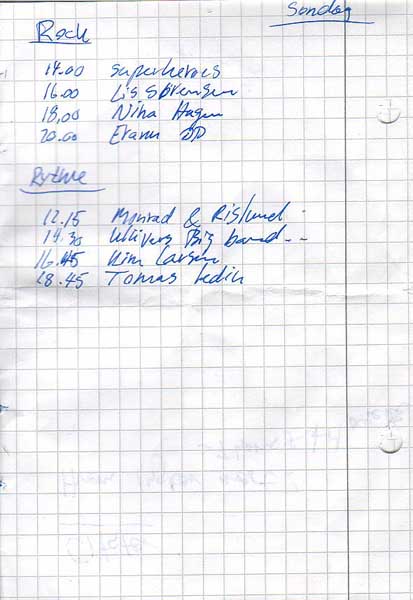 Søndag
Rock
14.00 Superheroes
16.00 Lis Sørensen
18,00 Nina Hagen
20.00
Rytme
12.15 Monrad & Rislund
14.30 Big band
16.45 Kim Larsen
18.45 Tomas Ledin